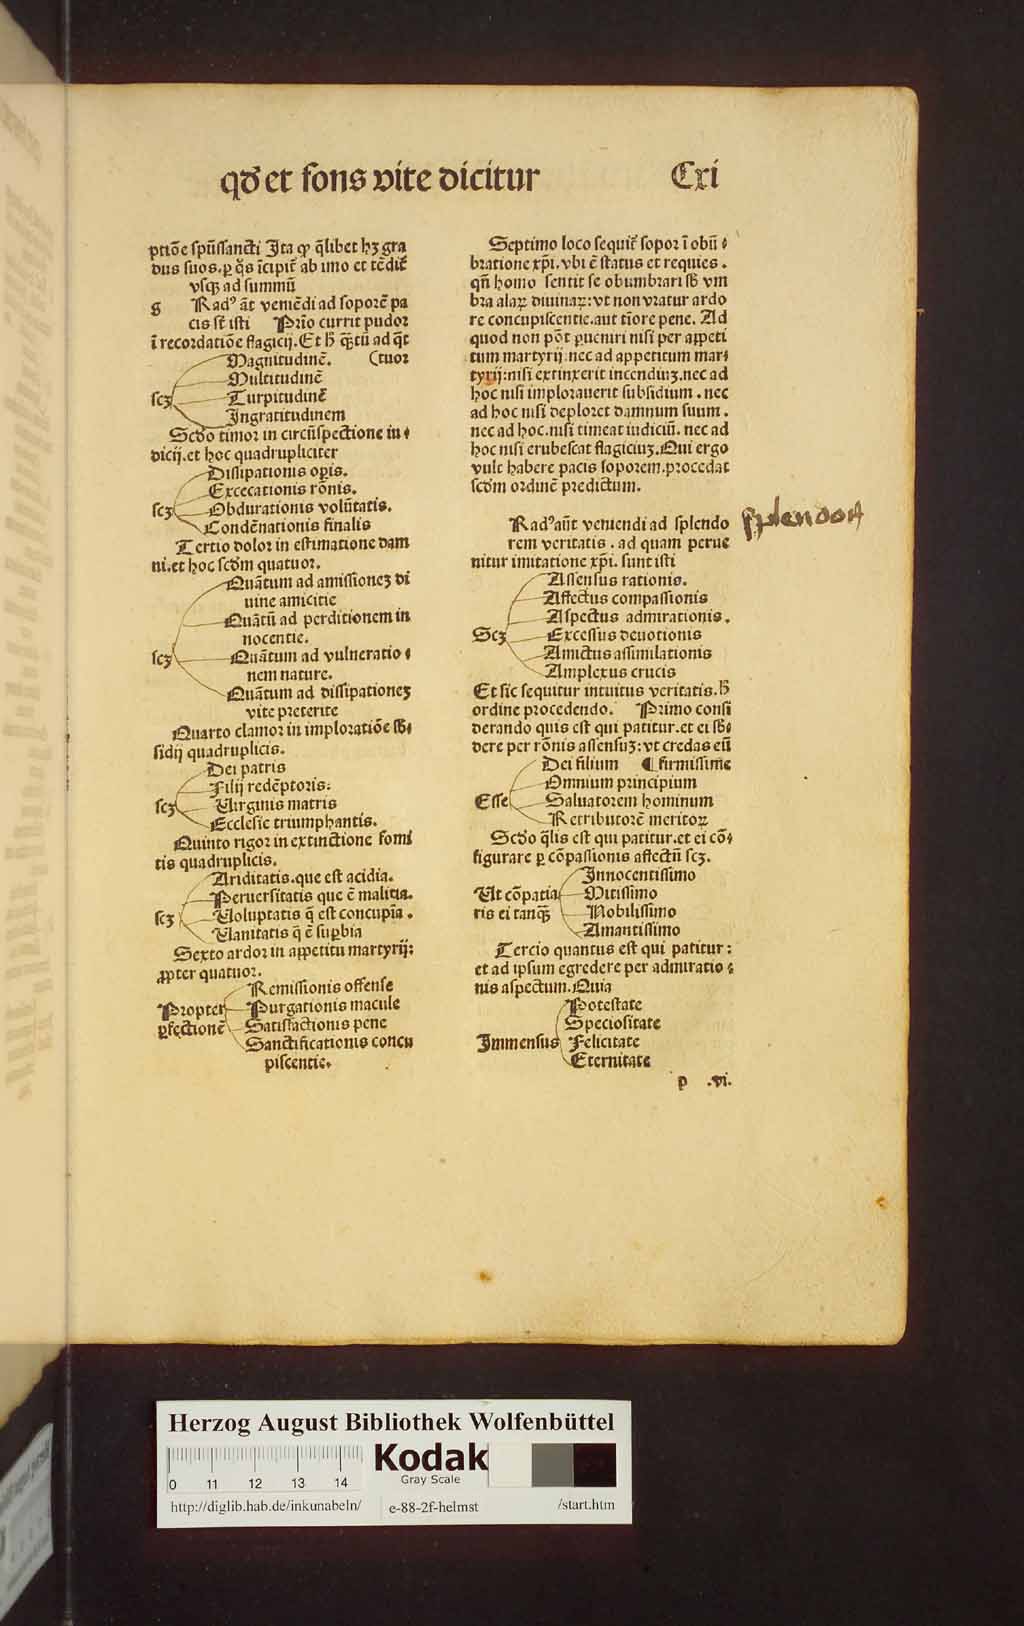 qđ et fons vite dicitur
Cxi
ptiōe spūssancti Ita ꝙ q̄libet hꝫ gra
dus suos. ꝑ q̄s īcipit̄ ab imo et tēdit̄
vsqꝫ ad summū
g Radꝰ āt veniēdi ad soporē pa
cis st̄ isti Prīo currit pudor
ī recordatiōe flagicij. Et h̄ q̄ꝫtū ad q̄t
Magnitudinē. (tuor
Multitudinē
scꝫ Turpitudinē
Ingratitudinem
Scd̄o timor in circūspectione iu⸗
dicij. et hoc quadrupliciter
Dissipationis oꝑis.
Excecationis rōnis.
scꝫ Obdurationis volūtatis.
Condēnationis finalis
Tertio dolor in estimatione dam
ni. et hoc scd̄m quatuor.
Quātum ad amissioneꝫ di
uine amicitie
Quātū ad perditionem in
nocentie.
scꝫ Quātum ad vulneratio⸗
nem nature.
Quātum ad dissipationeꝫ
vite preterite
Quarto clamor in imploratiōe sb̄⸗
sidij quadruplicis.
Dei patris
Filij redēptoris:
scꝫ Virginis matris
Ecclesie triumphantis.
Quinto rigor in extinctione fomi
tis quadruplicis.
Ariditatis. que est acidia.
Peruersitatis que ē malitia.
scꝫ Voluptatis q̄ est concupīa.
Vanitatis q̄ ē suꝑbia
Sexto ardor in appetitu martyrij:
ꝓpter quatuor.
Remissionis offense
Propter Purgationis macule
ꝑfectionē Satisfactionis pene
Sanctificationis concu
piscentie.
Septimo loco sequit̄ sopor ī obū⸗
bratione xp̄i. vbi ē status et requies.
qn̄ homo sentit se obumbrari sb̄ vm
bra alaꝝ diuinaꝝ: vt non vratur ardo
re concupiscentie. aut tīore pene. Ad
quod non pōt ꝑueniri nisi per appeti
tum martyrij. nec ad appetitum mar⸗
tyrij: nisi extinxerit incendiuꝫ. nec ad
hoc nisi implorauerit subsidium. nec
ad hoc nisi deploret damnum suum.
nec ad hoc. nisi timeat iudiciū. nec ad
hoc nisi erubescat flagiciuꝫ. Qui ergo
vult habere pacis soporem. procedat
scd̄m ordinē predictum.
Radꝰ aūt veniendi ad splendo
rem veritatis. ad quam perue
nitur imitatione xp̄i. sunt isti
Assensus rationis.
Affectus compassionis
Aspectus admirationis.
Scꝫ Excessus deuotionis
Amictus assimilationis
Amplexus crucis
Et sic sequitur intuitus veritatis. h̄
ordine procedendo. Primo consi
derando quis est qui patitur. et ei sb̄⸗
dere per rōnis assensuꝫ: vt credas eū
Dei filium ¶ firmissime
Omnium principium
Esse Saluatorem hominum
Retributorē meritoꝝ
Scd̄o q̄lis est qui patitur. et ei cō⸗
figurare ꝑ cōpassionis affectū scꝫ.
Innocentissimo
Vt cōpatia Mitissimo
ris ei tanqꝫ Nobilissimo
Amantissimo
Tercio quantus est qui patitur:
et ad ipsum egredere per admiratio⸗
nis aspectum. Quia
Potestate
Speciositate
Immensus Felicitate
Eternitate
p .vi.
splendor
Herzog August Bibliothek Wolfenbüttel
0 11 12 13 14
Kodak
Gray Scale
http://diglib.hab.de/inkunabeln/ e-88-2f-helmst /start.htm